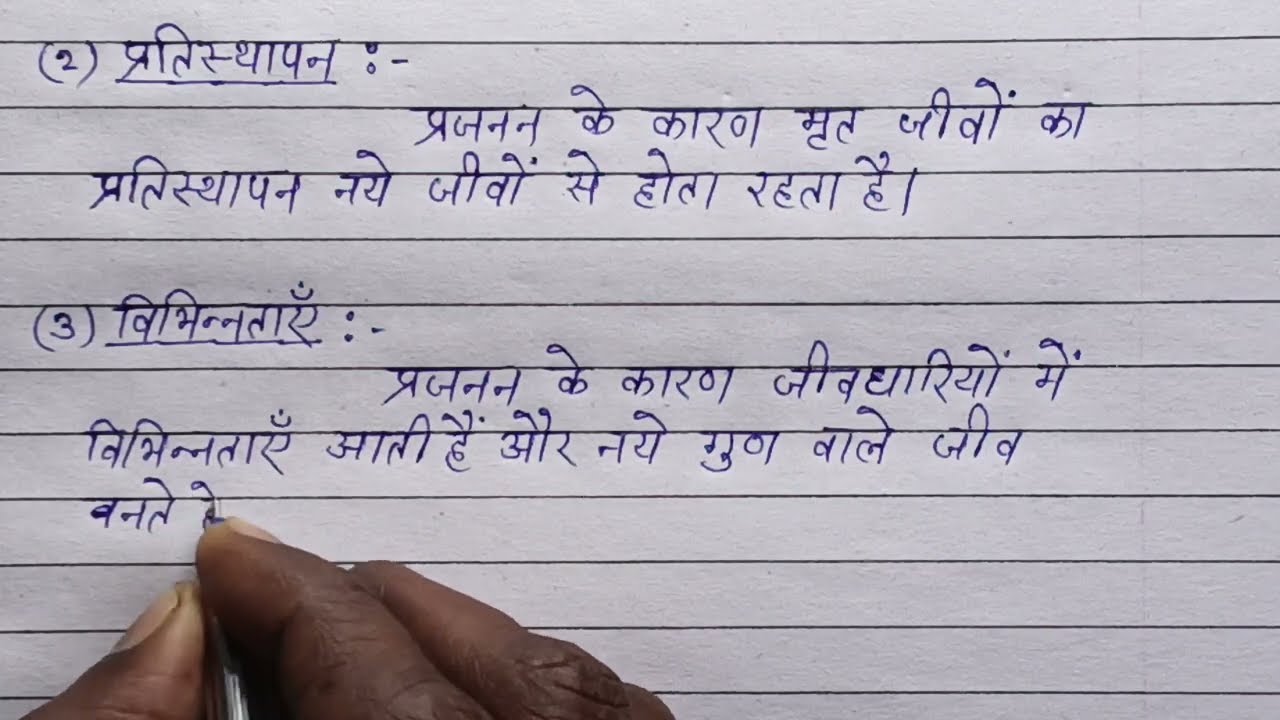 (२) प्रतिस्थापन :-
प्रजनन के कारण मृत जीवों का
प्रतिस्थापन नये जीवों से होता रहता है।
(३) विभिन्नताएँ :-
प्रजनन के कारण जीवधारियों में
विभिन्नताएँ आती हैं और नये गुण वाले जीव
बनते